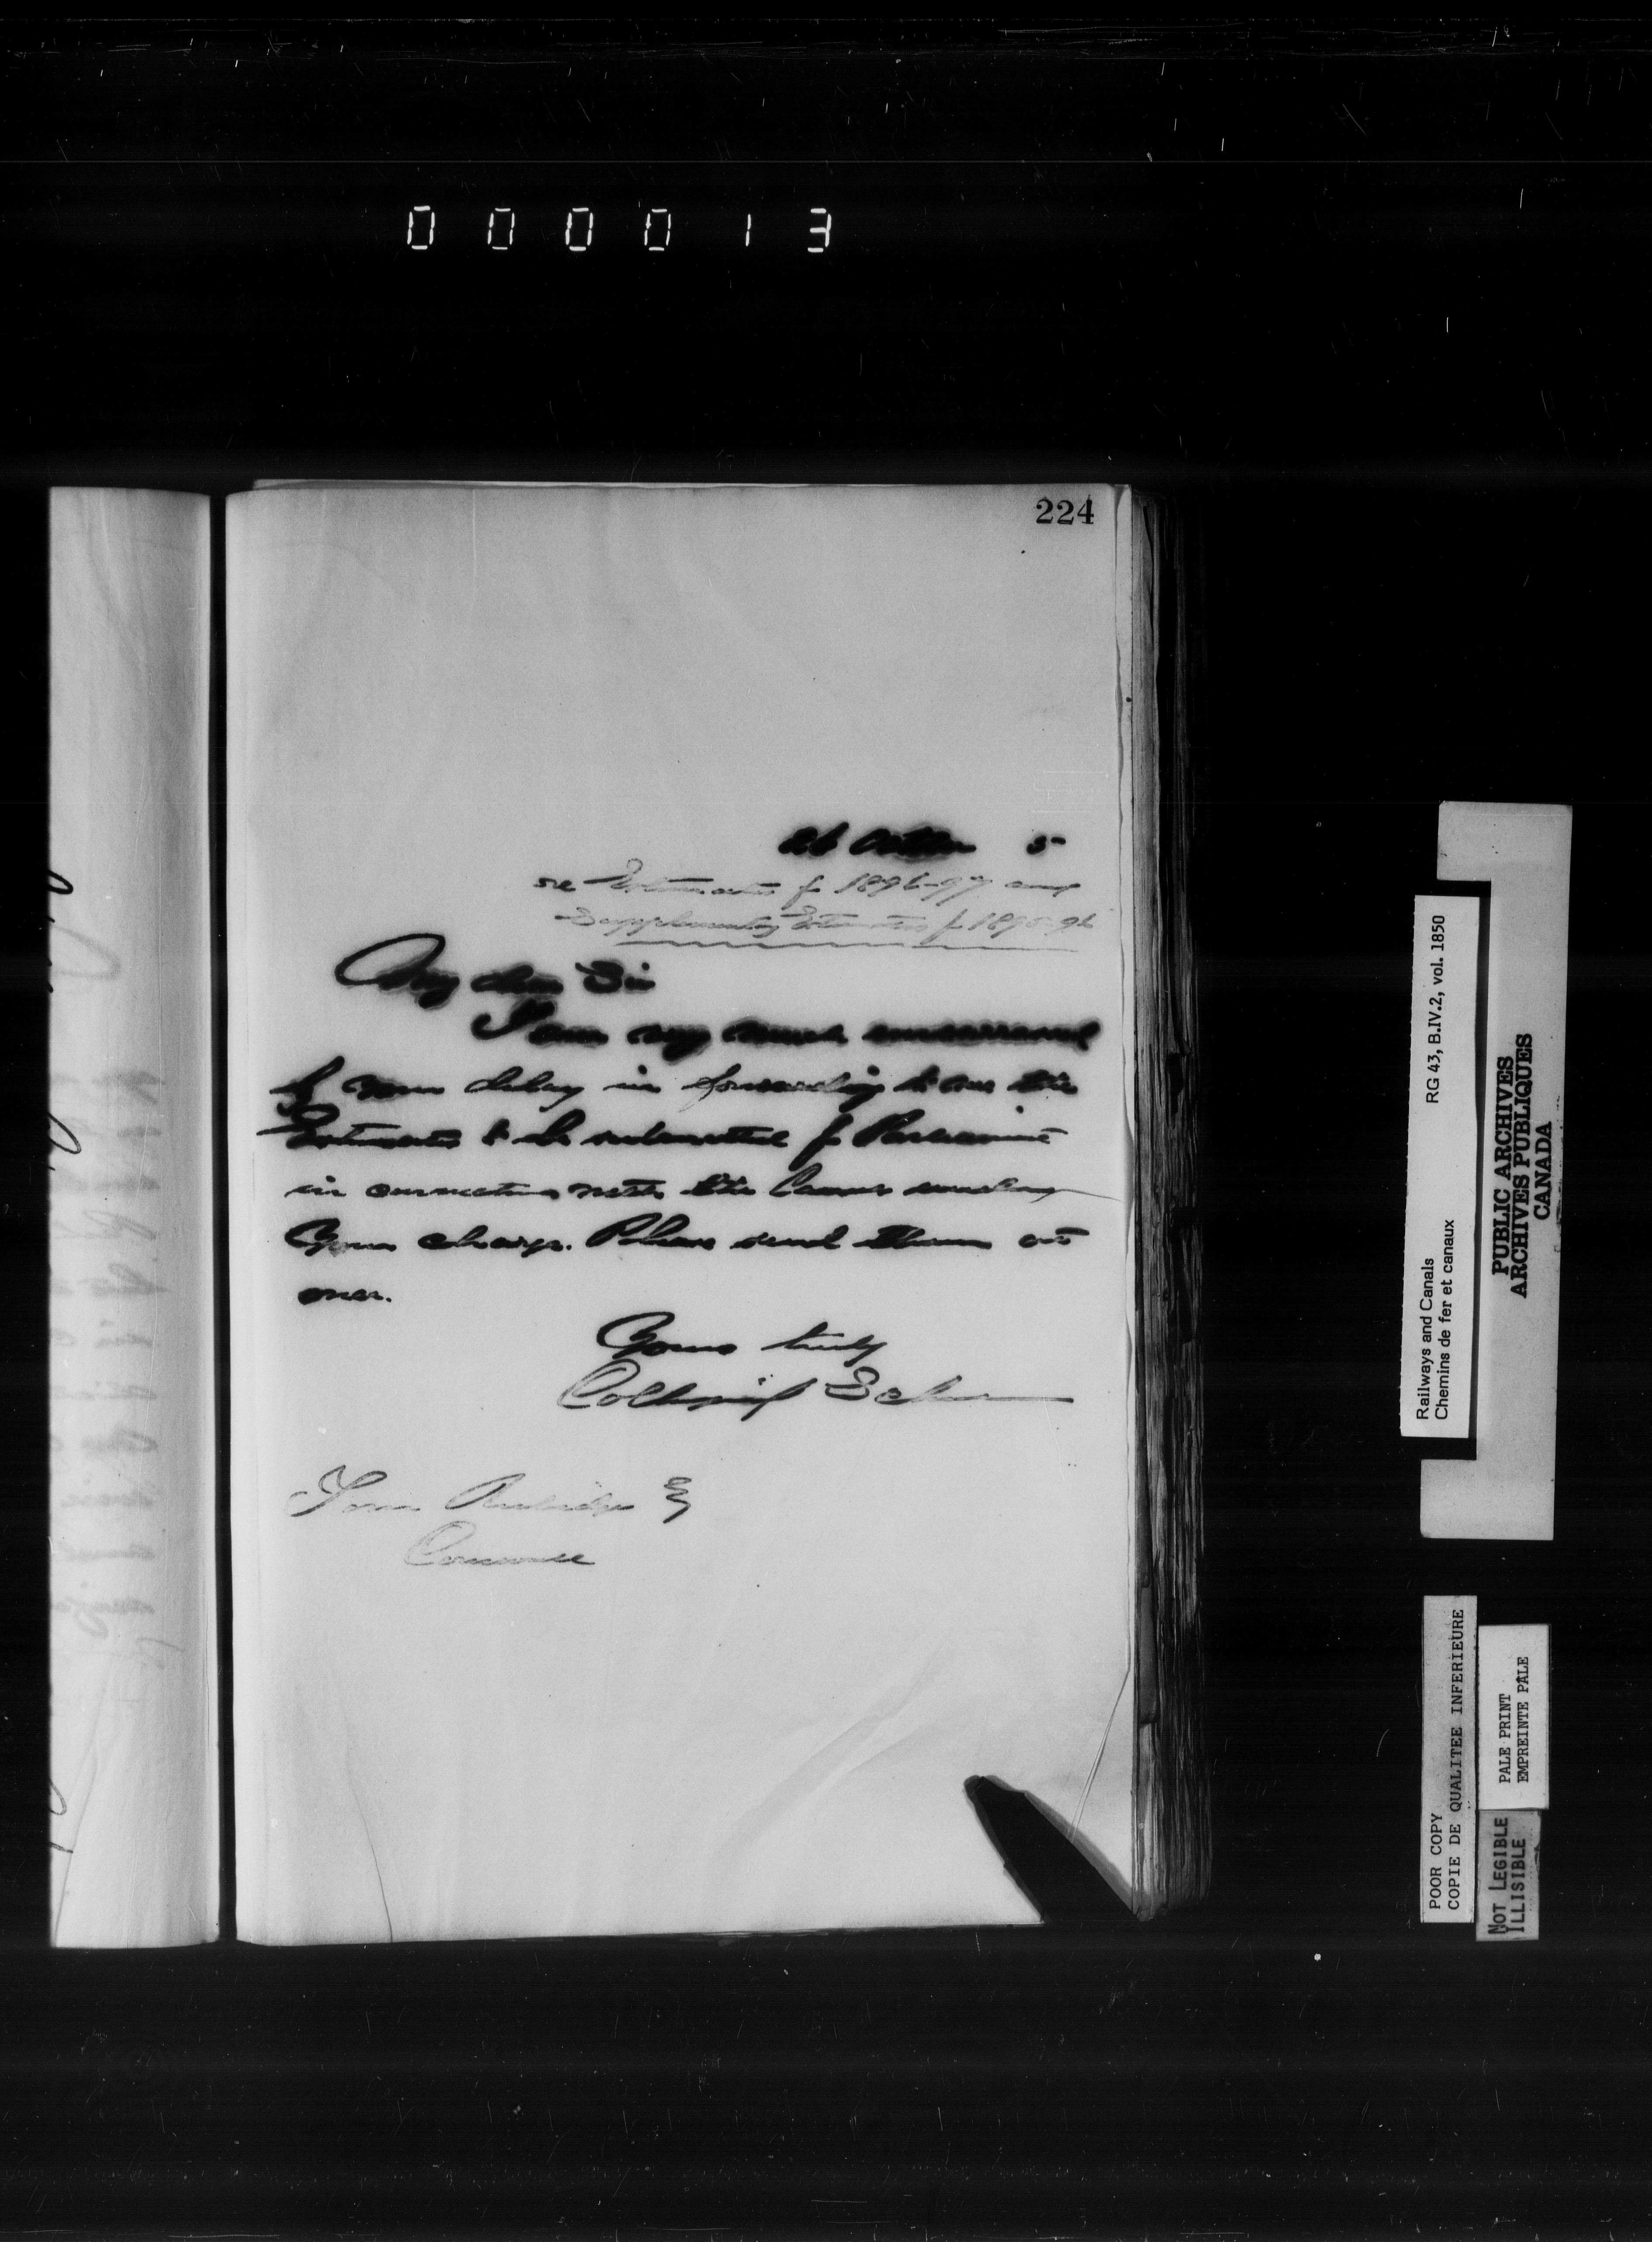 000013
224
26 October 5
re Estimates for 1896-97 and
Supplementary Estimates for 1895-96
My dear Sir
I am very much embarrassed
by your delay in forwarding to me the
Estimates to be submitted for Parliament
in connection with the Canals under
Your charge. Please send them at
once.
Yours truly
Collingwood Schreiber
Tom Rubidge Esq
Cornwall
Railways and Canals RG 43, B.IV.2, vol. 1850
Chemins de fer et canaux
PUBLIC ARCHIVES
ARCHIVES PUBLIQUES
CANADA
POOR COPY
COPIE DE QUALITEE INFERIEURE
PALE PRINT
EMPREINTE PÂLE
NOT LEGIBLE
ILLISIBLE